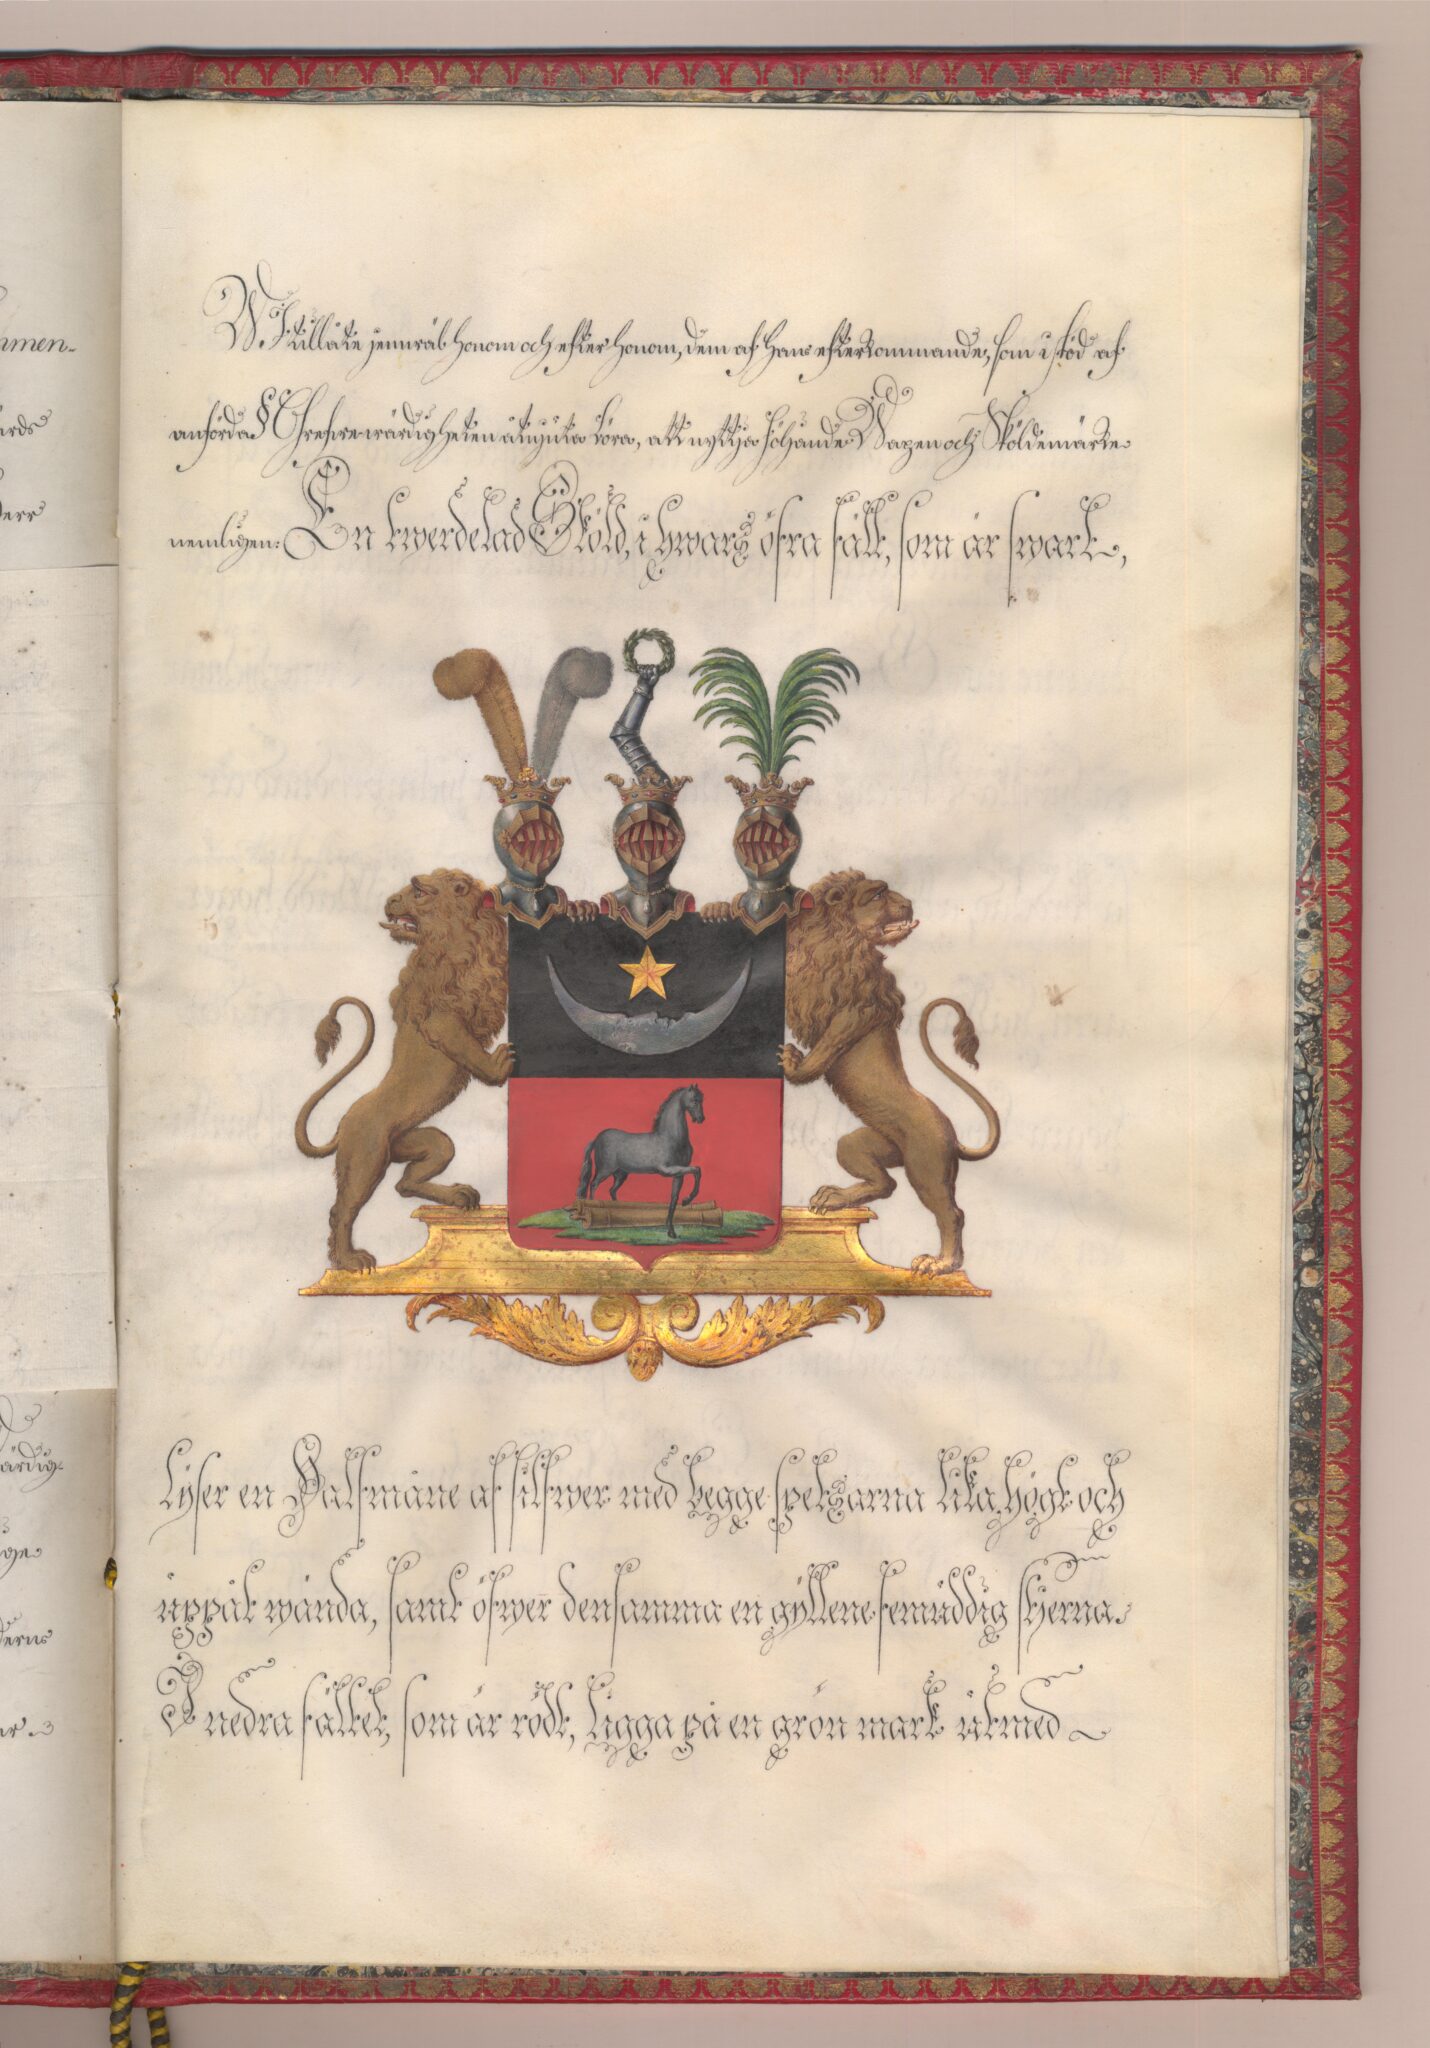 hmen-
ärds
Herr
ärdig-
derns
W.I tillåte jemwäl honom och efter honom, dem af Hans efterkommande, som i stöd af
anförda § Grefwe-wärdigheten åtnjuta böra, att nyttja följande Wapen och Sköldemärke
nemligen: En twerdelad Sköld, i hwars öfra fält, som är swart,
lyser en Halfmåne af silfwer med begge spetsarna lika högt och
uppåt wända, samt öfwer densamma en gyllene femuddig stjerna.
I nedra fältet, som är rödt, ligga på en grön mark utmed